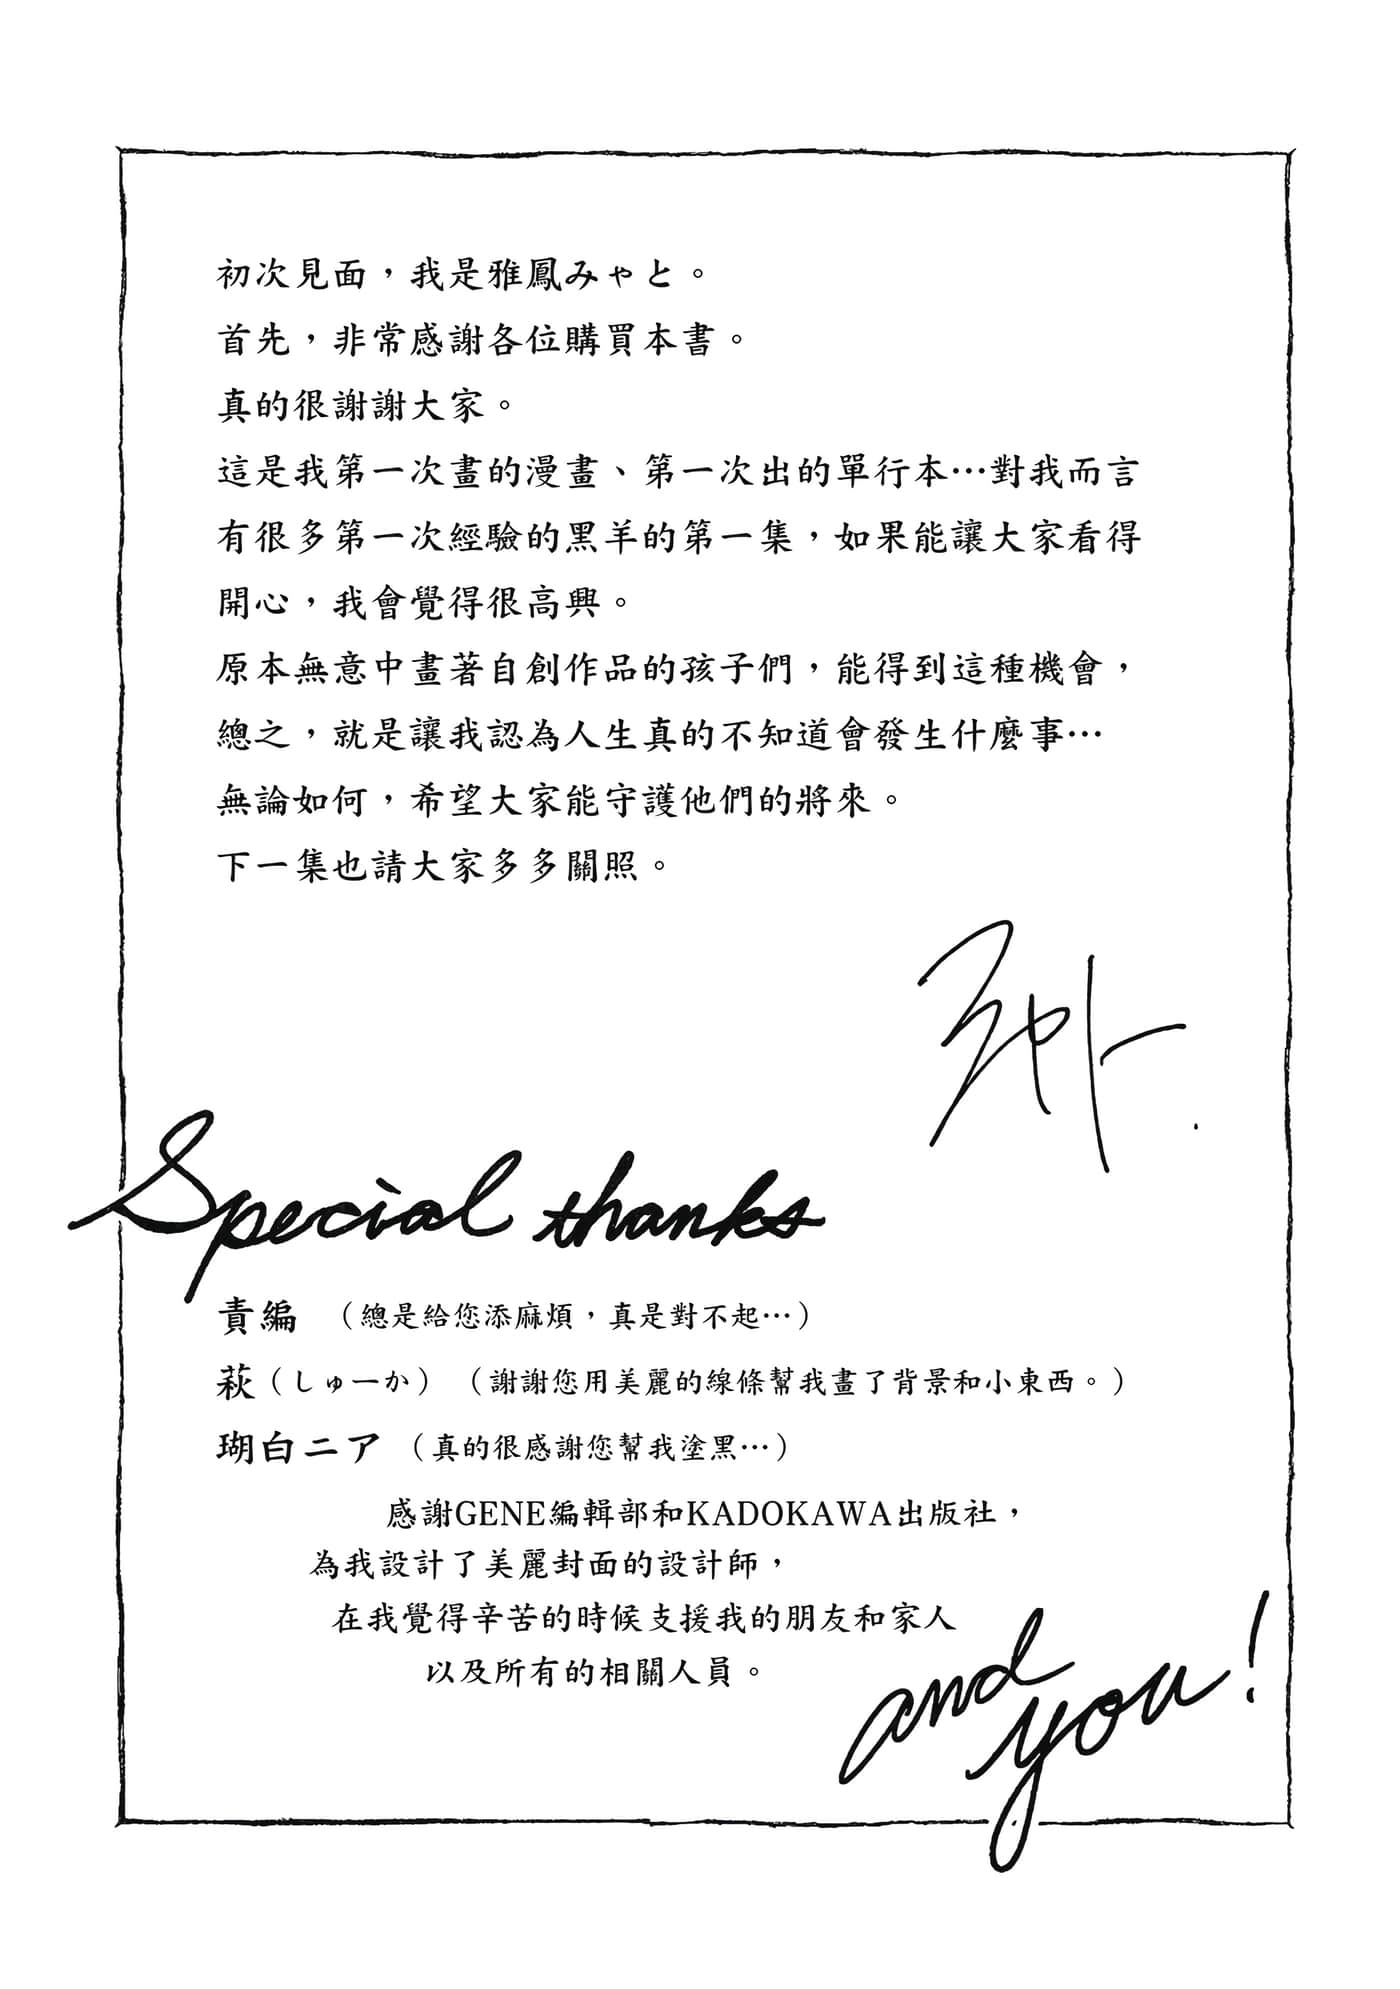 初次見面，我是雅鳳みゃと。
首先，非常感謝各位購買本書。
真的很謝謝大家。
這是我第一次畫的漫畫、第一次出的單行本…對我而言
有很多第一次經驗的黑羊的第一集，如果能讓大家看得
開心，我會覺得很高興。
原本無意中畫著自創作品的孩子們，能得到這種機會，
總之，就是讓我認為人生真的不知道會發生什麼事…
無論如何，希望大家能守護他們的將來。
下一集也請大家多多關照。
みゃと.
Special thanks
責編 （總是給您添麻煩，真是對不起…）
萩（しゅーか）（謝謝您用美麗的線條幫我畫了背景和小東西。）
瑚白ニア （真的很感謝您幫我塗黑…）
感謝GENE編輯部和KADOKAWA出版社，
為我設計了美麗封面的設計師，
在我覺得辛苦的時候支援我的朋友和家人
以及所有的相關人員。
and
you!